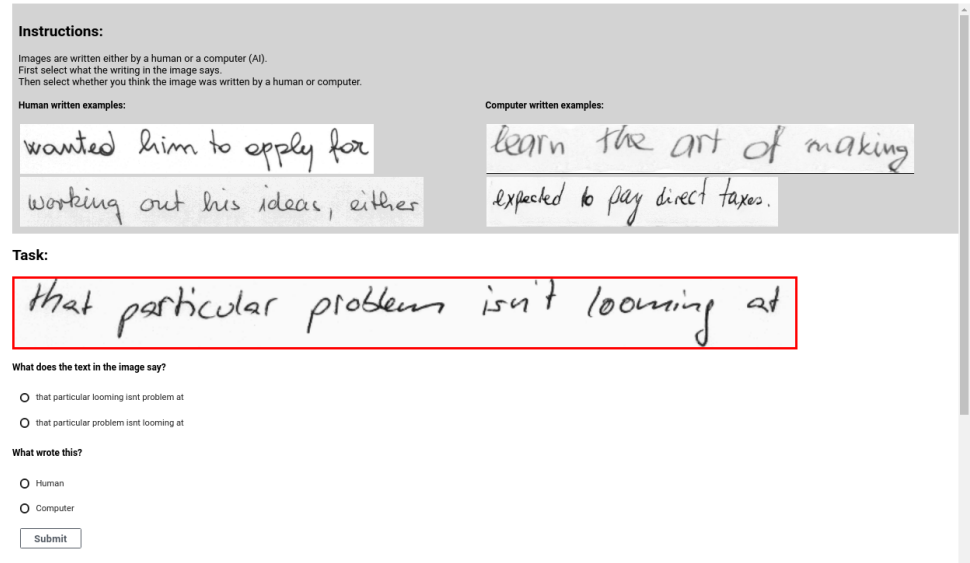 Instructions:
Images are written either by a human or a computer (AI).
First select what the writing in the image says.
Then select whether you think the image was written by a human or computer.
Human written examples:
wanted him to apply for
working out his ideas, either
Computer written examples:
learn the art of making
expected to pay direct taxes.
Task:
that particular problem isn't looming at
What does the text in the image say?
that particular looming isnt problem at
that particular problem isnt looming at
What wrote this?
Human
Computer
Submit